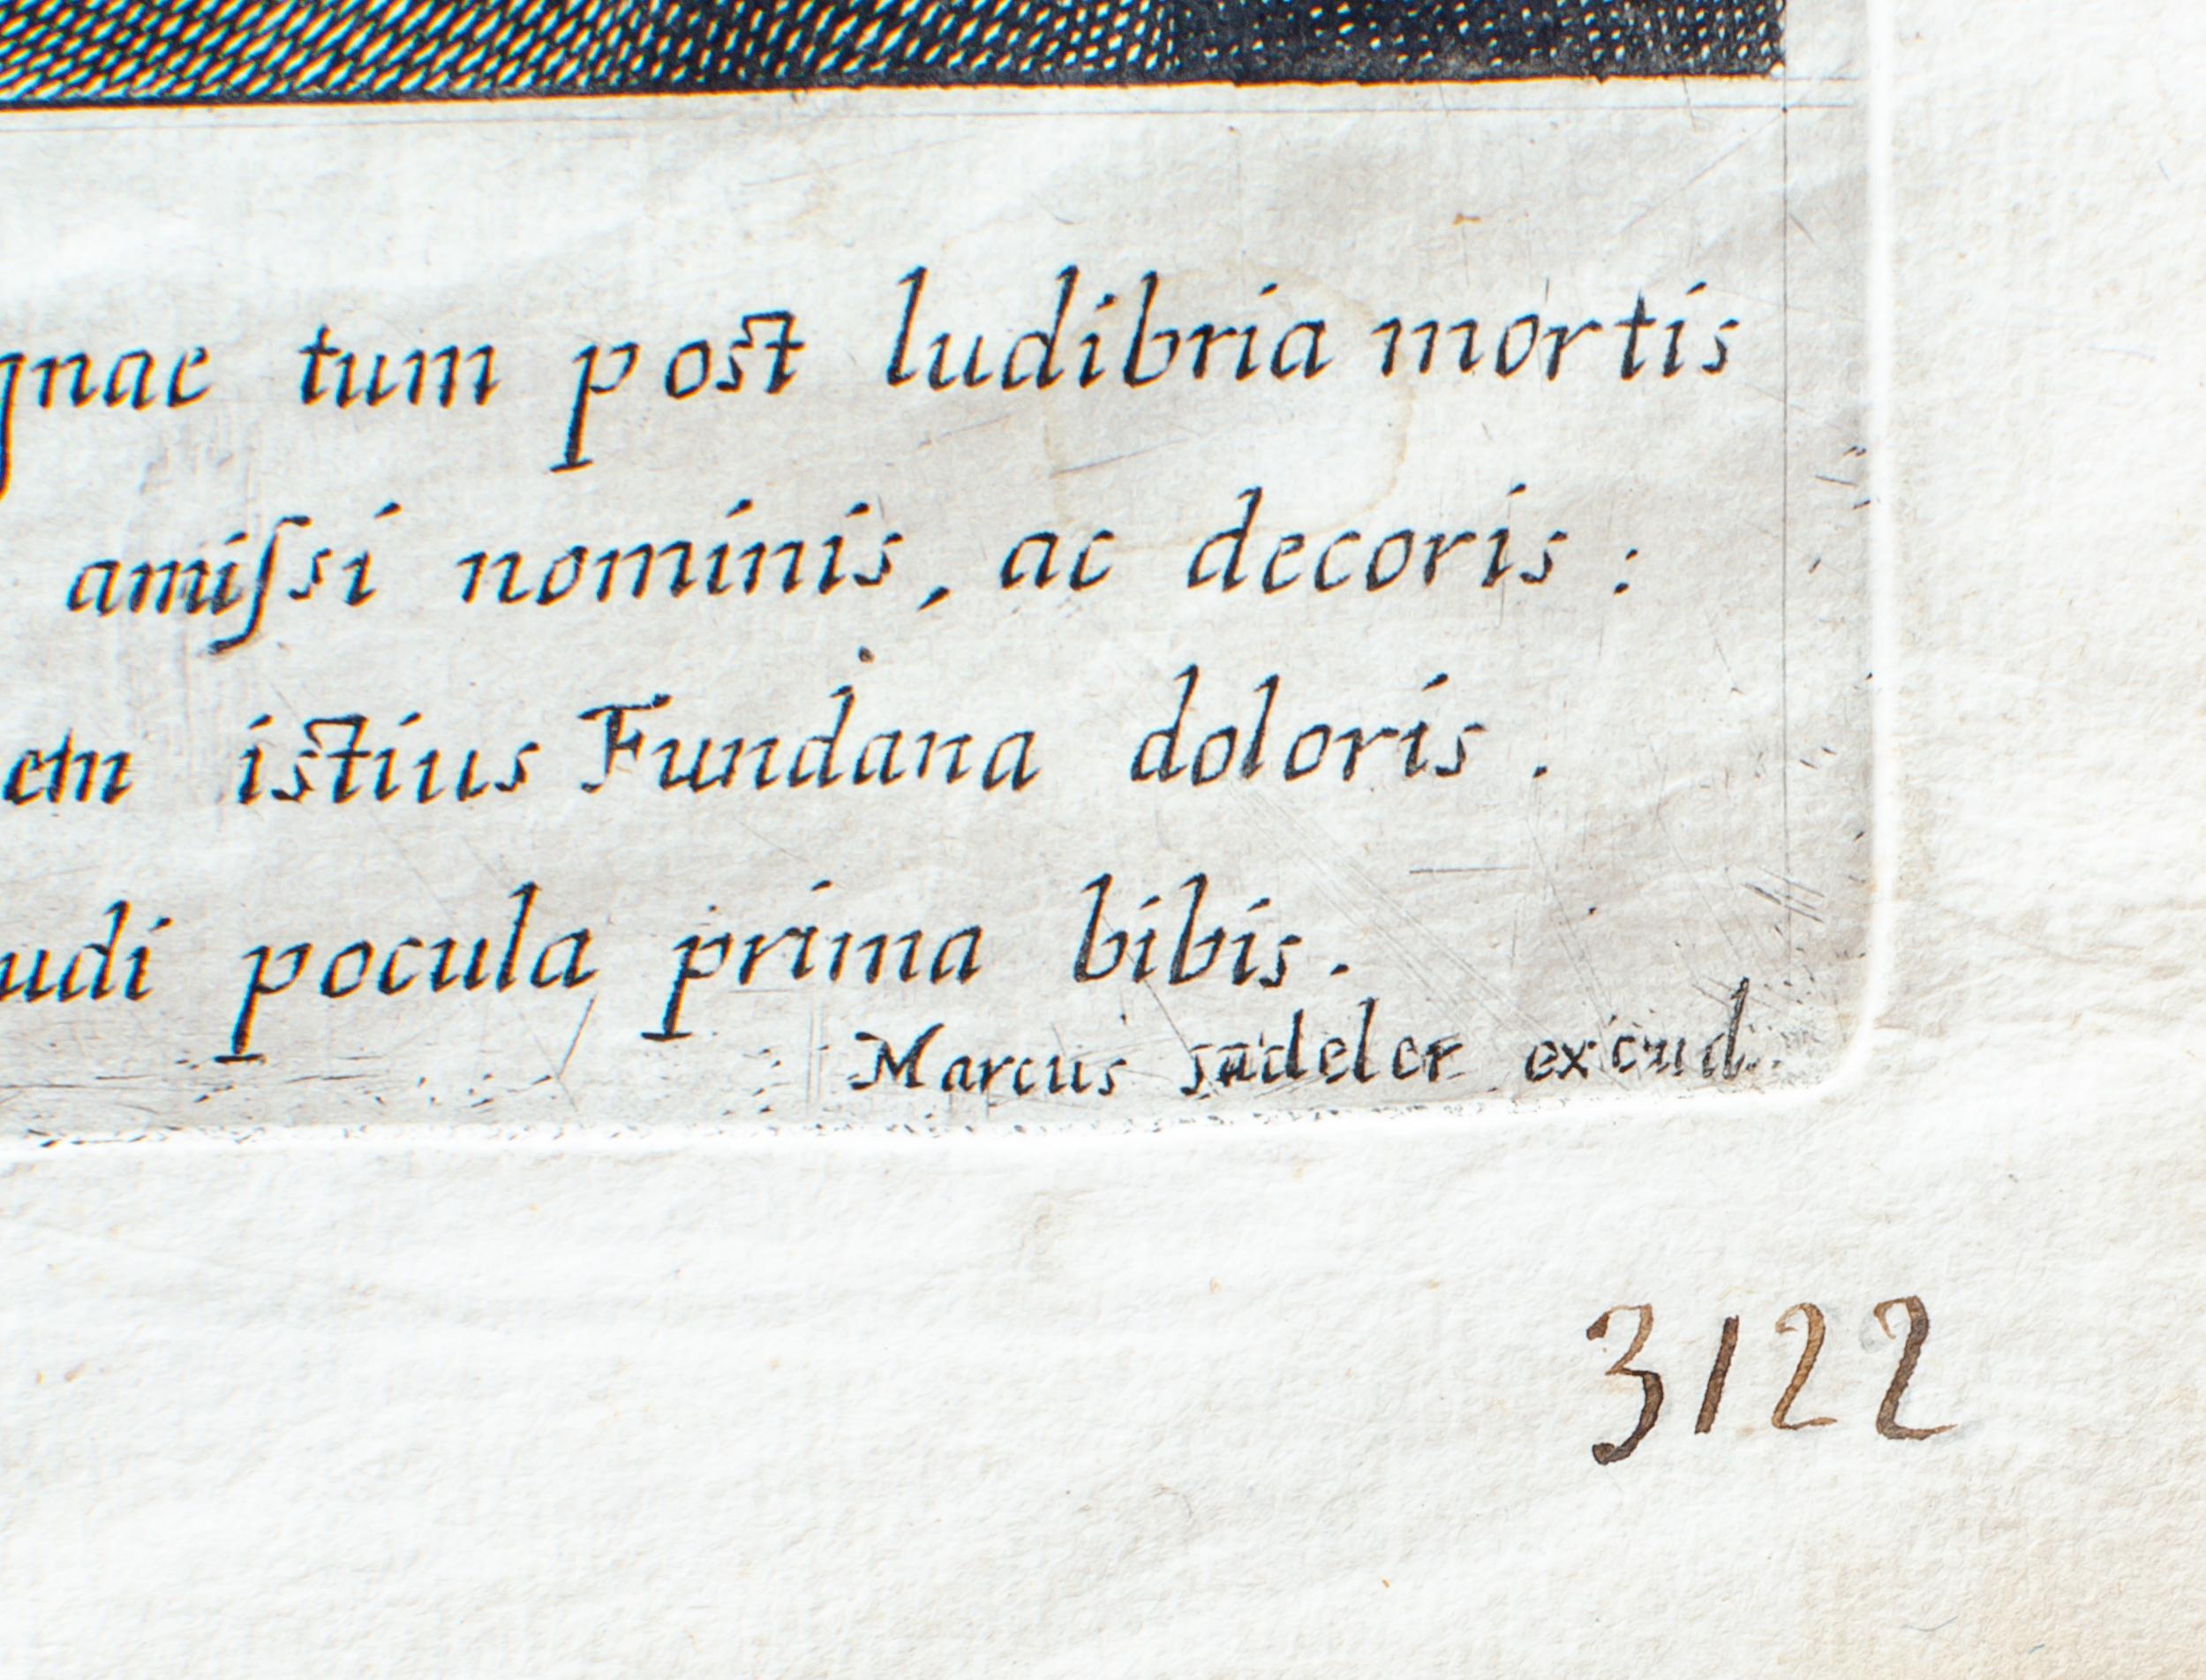 gnae tum post ludibria mortis
amiſsi nominis, ac decoris :
em istius Fundana doloris .
udi pocula prima bibis .
Marcus sadeler excud.
3122